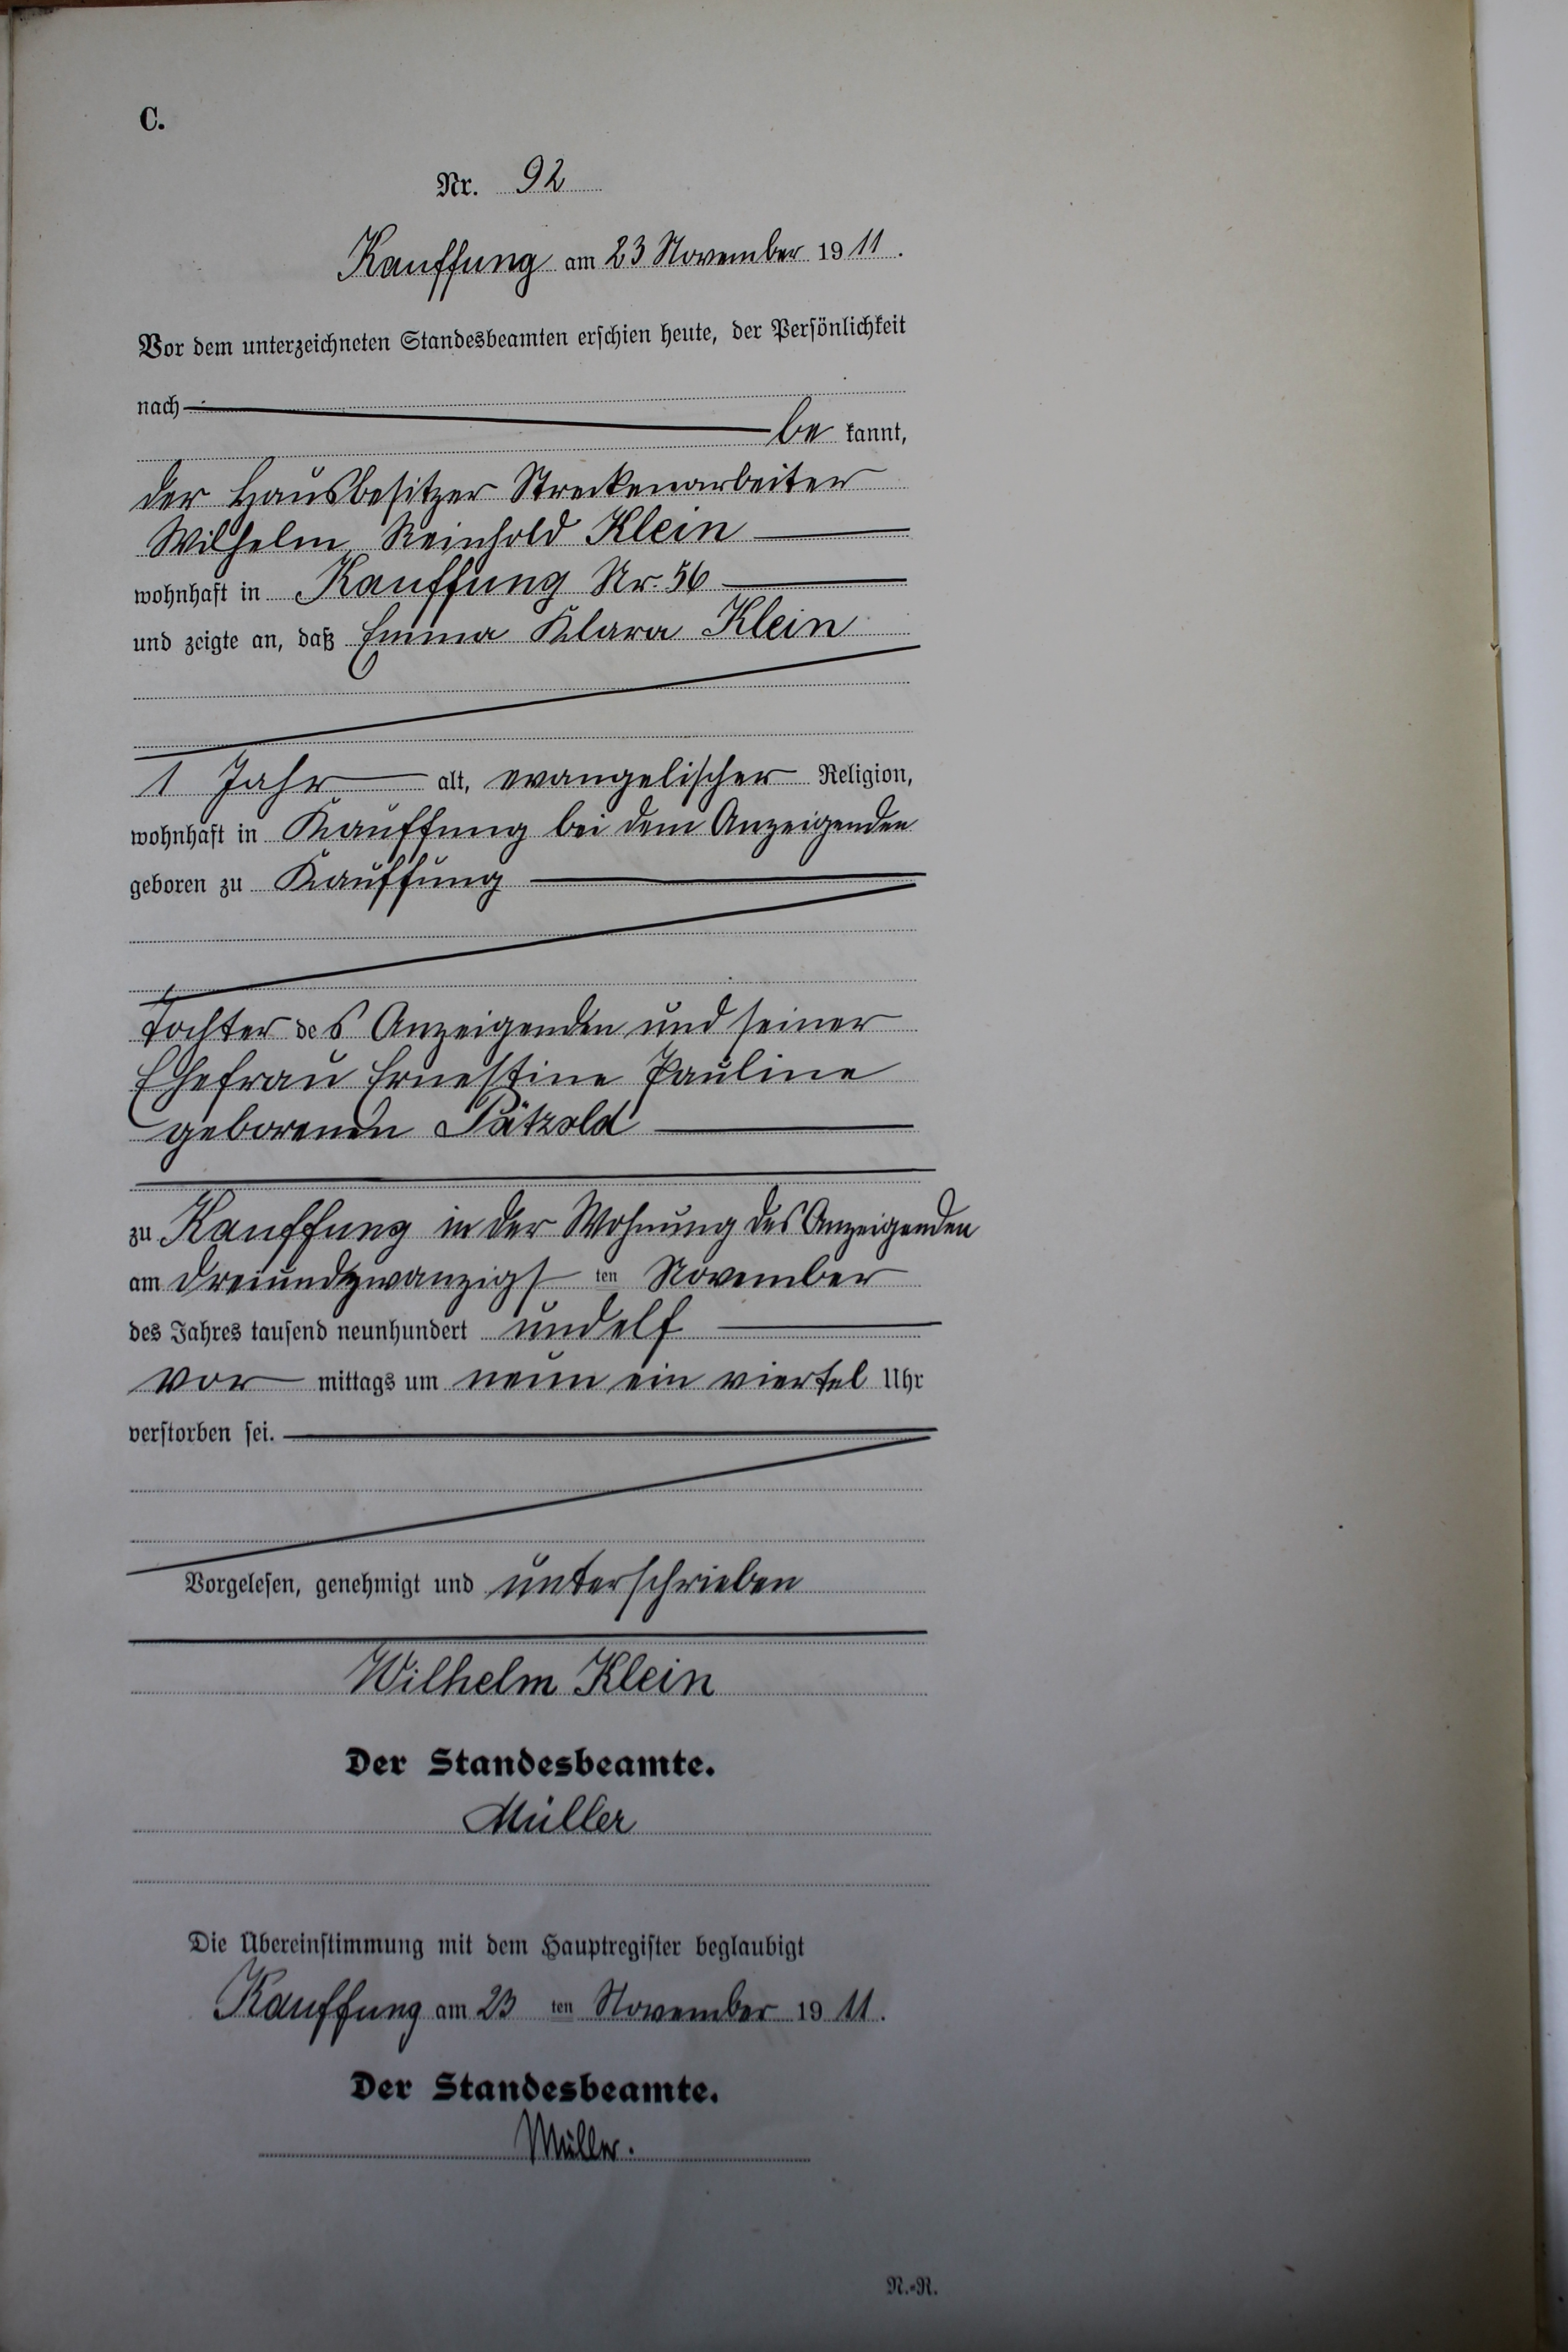 C.
Nr. 92
Kauffung am 23 November 1911.
Vor dem unterzeichneten Standesbeamten erschien heute, der Persönlichkeit
nach
be kannt,
der Hausbesitzer Streckenarbeiter
Wilhelm Reinhold Klein
wohnhaft in Kauffung Nr. 56
und zeigte an, daß Emma Klara Klein
1 Jahr alt, evangelischer Religion,
wohnhaft in Kauffung bei dem Anzeigenden
geboren zu Kauffung
Tochter des Anzeigenden und seiner
Ehefrau Ernestine Pauline
geborenen Pätzold
zu Kauffung in der Wohnung des Anzeigenden
am dreiundzwanzigsten November
des Jahres tausend neunhundert und elf
vor mittags um neun ein viertel Uhr
verstorben sei.
Vorgelesen, genehmigt und unterschrieben
Wilhelm Klein
Der Standesbeamte.
Müller
Die Übereinstimmung mit dem Hauptregister beglaubigt
Kauffung am 23 ten November 1911.
Der Standesbeamte.
Müller.
N.-R.